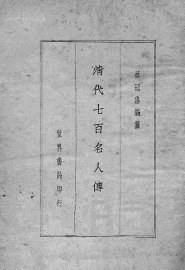 蔡冠洛編纂
清代七百名人傳
世界書局印行